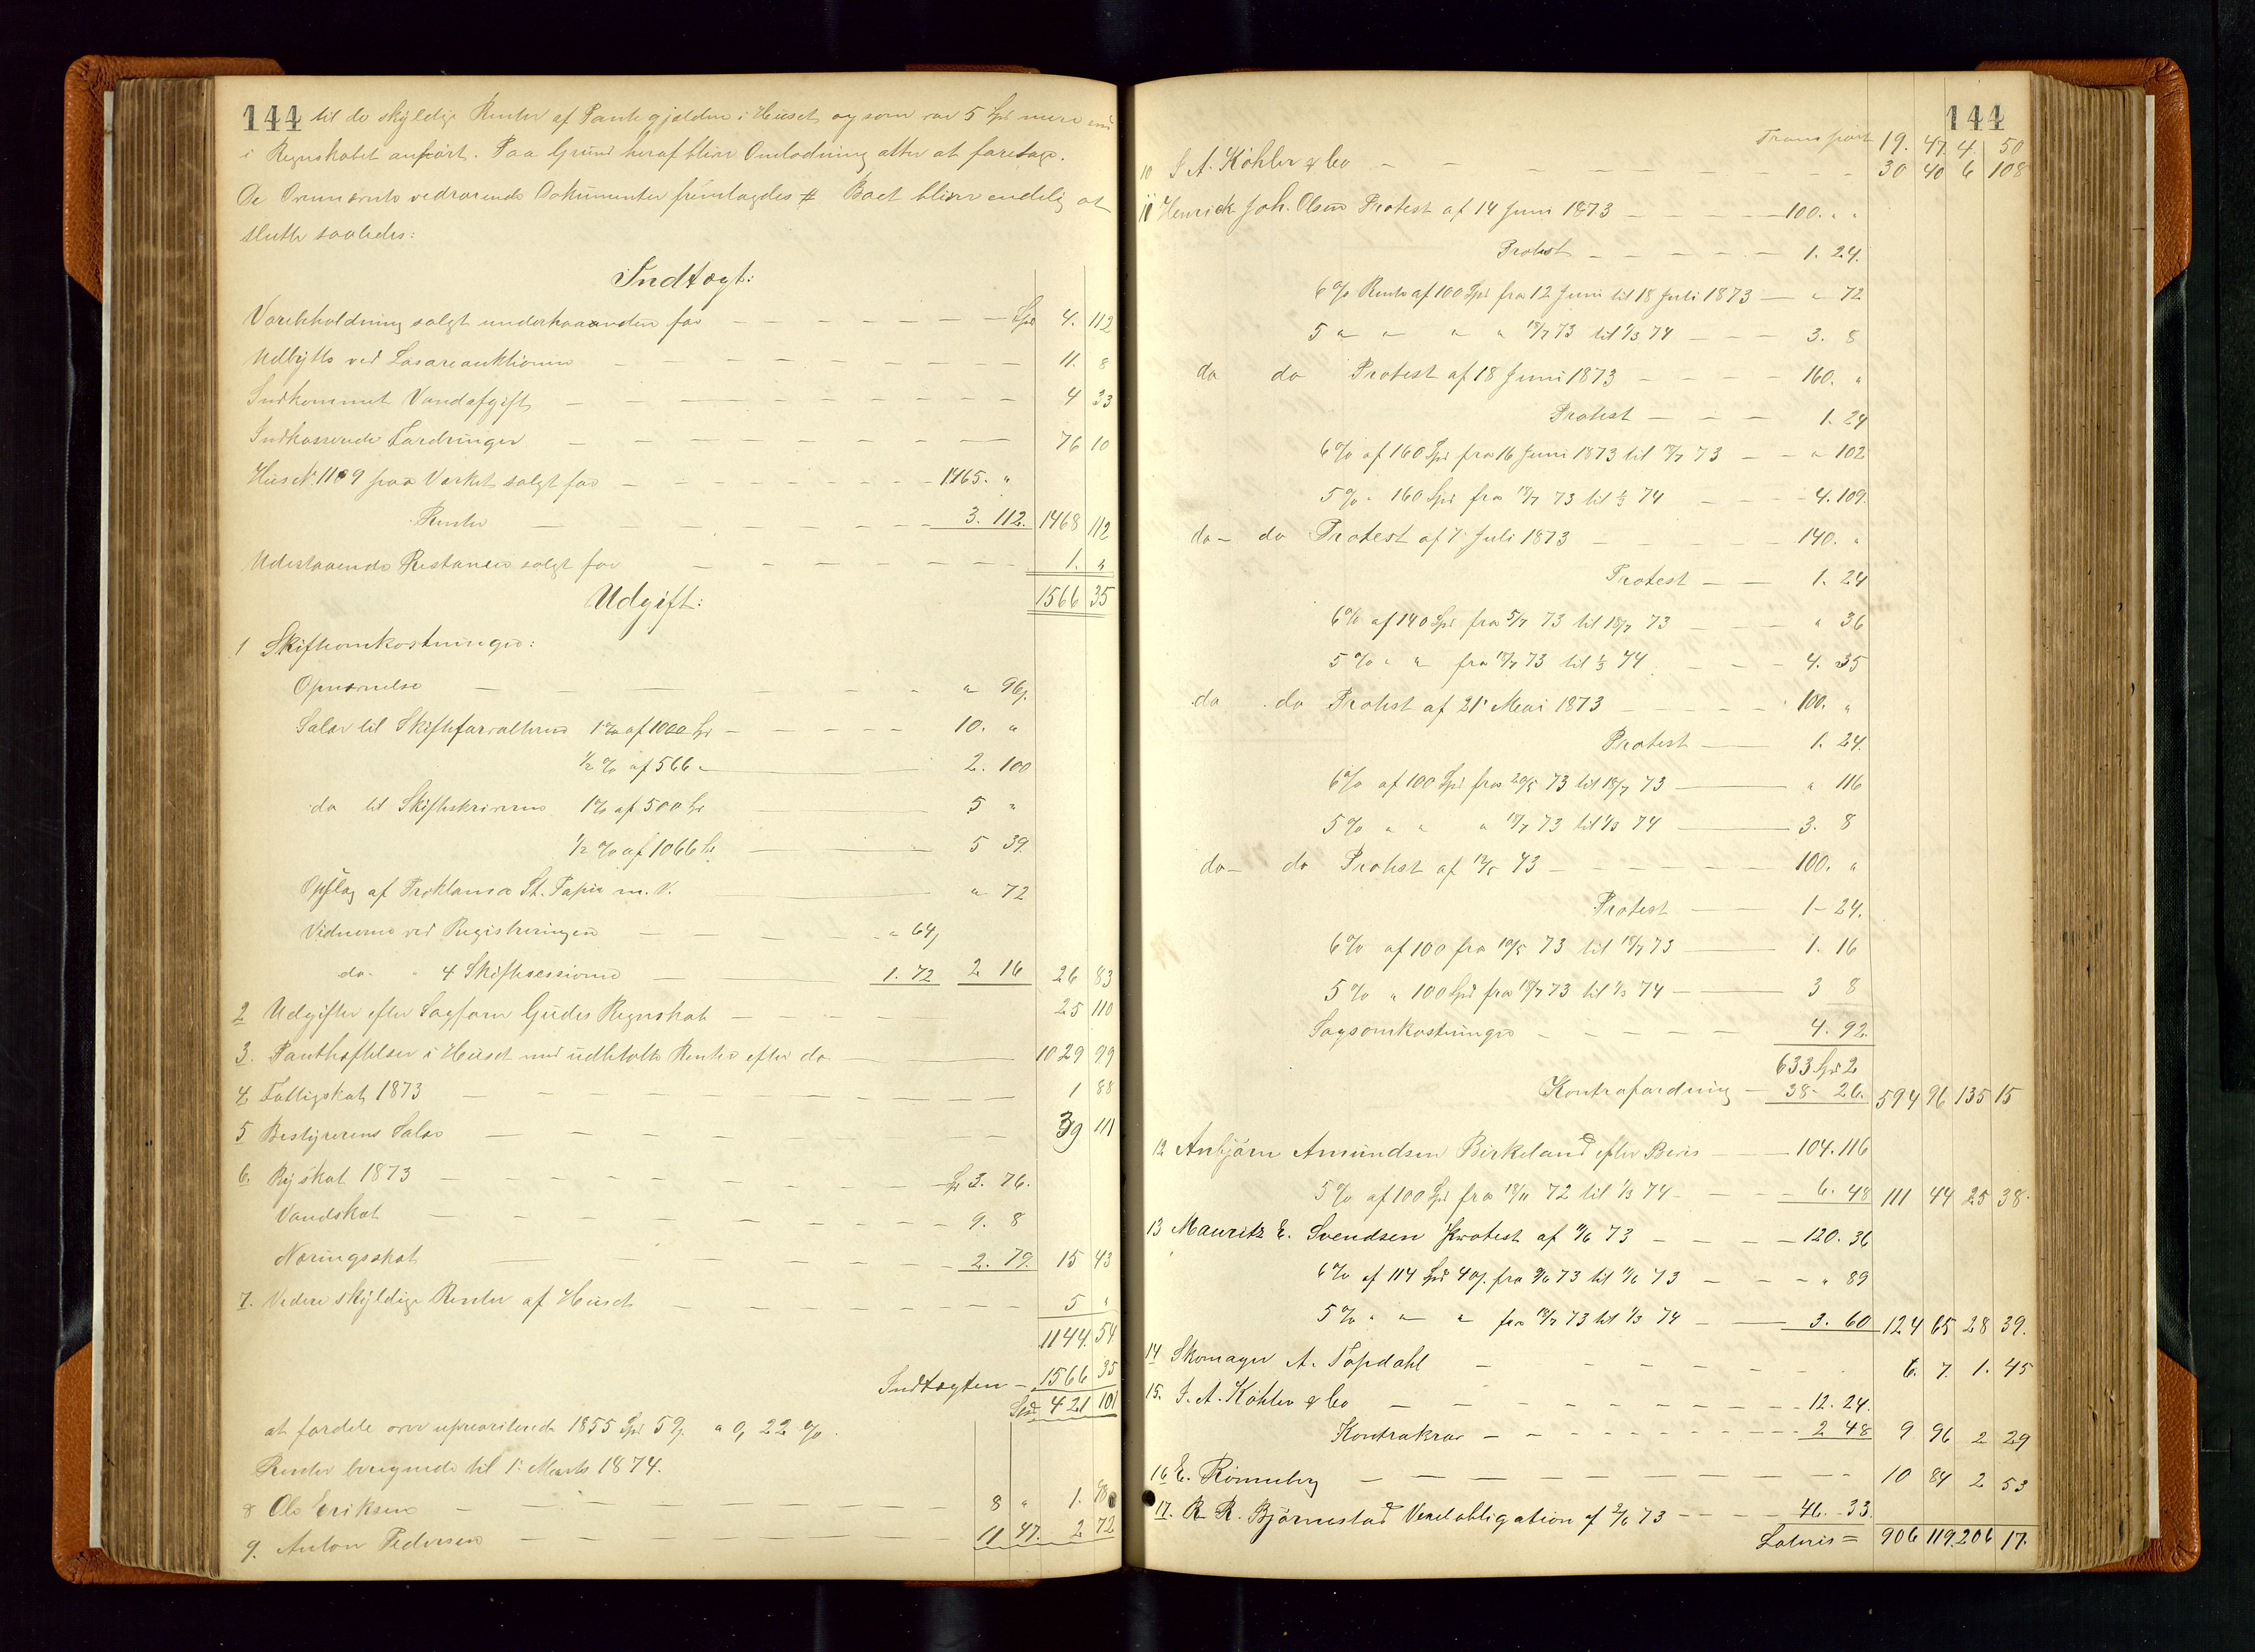 144 til de skyldige Renter af Pantegjælden i Huset og som var 5 Spd mere end
i Regnskabet anført. Paa Grund heraf bliver Omlodning atter at foretage.
De Ovennævnte vedrørende Dokumenter fremlagdes # Boet bliver endelig at
slutte saaledes:
Indtægt:
Varebeholdning solgt underhaanden for — Spd 4. 112
Udbytte ved Løsøreauktionen — 11. 8
Indkommet Vandafgift — 4 33
Indkasserede Fordringer — 76 10
Hus No. 1109 paa Verket solgt for — 1465. "
Renter — 3. 112. 1468 112
Udestaaende Restancer solgt for — 1. "
1566 35
Udgift:
1 Skifteomkostninger:
Opnævnelse — " 96
Salær til Skifteforvalteren 1% af 1000 Spd — 10. "
½ % af 566 " — 2. 100
do til Skifteskriveren 1% af 500 Spd — 5 "
½ % af 1066 Spd — 5 39
Opslag af Proklama St. Papir m. V. — " 72
Vidnerne ved Registreringen — " 64
do. " 4 Skiftesessioner — 1. 72 2 16 26 83
2 Udgifter efter Sagfører Gudes Regnskab — 25 110
3. Panthæftelser i Huset med udbetalte Renter efter do — 1029 99
4 Fattigskat 1873 — 1 88
5 Bestyrerens Salær — 39 111
6. Byskat 1873 — Sp 3. 76.
Vandskat — 9. 8
Næringsskat — 2. 79. 15 43
7. Videre skyldige Renter af Huset — 5 "
1144. 54
Indtægten — 1566 35
Spd 421 101
at fordele over uprioriterede 1855 Spd 59 " 0,22 %.
Renter beregnede til 1. Marts 1874.
8 Ole Eriksen — 8 " 1.
9. Anton Pedersen — 11 47. 2 72
144
Transport 19. 47 4. 50
10 J. A. Köhler & Co — 30 40 6 108
11 Henrick Joh. Olsen Protest af 14 Juni 1873 — 100. "
Protest — 1. 24.
6% Rente af 100 Spd fra 12 Juni til 18 Juli 1873 — " 72
5 " " " " 18/7 73 til 1/3 74 — 3. 8
do do Protest af 18 Juni 1873 — 160. "
Protest — 1. 24
6% af 160 Spd fra 16 Juni 1873 til 18/7 73 — " 102
5% " 160 Spd fra 18/7 73 til 1/3 74 — 4. 109.
do — do Protest af 7 Juli 1873 — 140. "
Protest — 1. 24
6% af 140 Spd fra 5/7 73 til 18/7 73 — " 36
5% " " fra 18/7 73 til 1/3 74 — 4. 35
do do Protest af 21 Mai 1873 — 100. "
Protest — 1. 24.
6% af 100 Spd fra 20/5 73 til 18/7 73 — " 116
5% " " " 18/7 73 til 1/3 74 — 3. 8
do — do Protest af 12/5 73 — 100. "
Protest — 1 — 24.
6% af 100 fra 10/5 73 til 18/7 73 — 1. 16
5% " 100 Spd fra 18/7 73 til 1/3 74 — 3 8
Sagsomkostninger — 4. 92.
633 Spd 2
Kontrafordring — 38 — 26. 594 96 135 15
12 Anbjörn Amundsen Birkeland efter Bevis — 104. 116
5% af 100 Spd fra 18/11 72 til 1/3 74 — 6. 48 111 44 25 38.
13 Mauritz E. Svendsen Protest af 11/6 73 — 120. 36
6% af 114 Spd 40 fra 9/6 73 til 11/6 73 — " 89
5% " " " fra 18/7 73 til 1/3 74 — 3. 60 124 65 28 39.
14 Skomager A. Topdahl — 6. 7. 1. 45
15. J. A. Köhler & Co — 12. 24.
Kontrakrav — 2 48 9 96 2 29
16 E. Rönneberg — 10 84 2 53
17. R. R. Björnestad Vexelobligation af 2/6 73 — 46. 33.
Lateris = 906 119. 206 17.